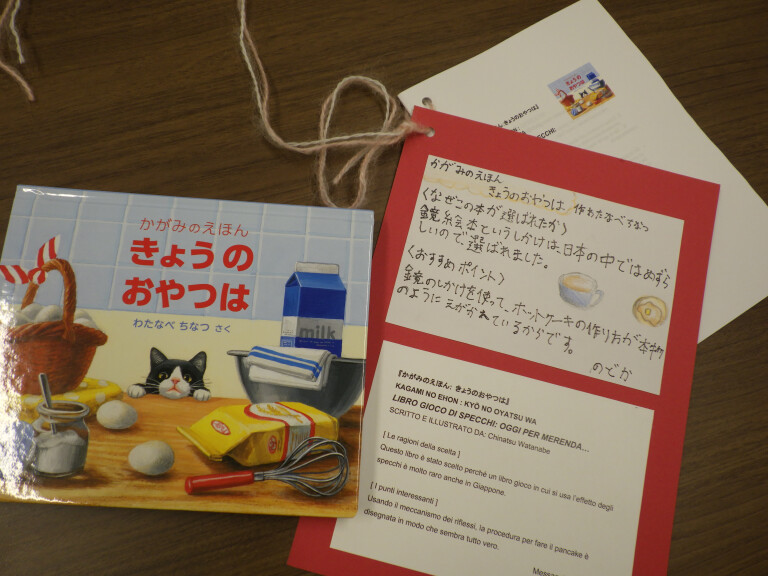 かがみのえほん
きょうの
おやつは
わたなべ ちなつ さく
milk
きょうの
おやつは
きょうのおやつは』
SPECCHI:
かがみのえほん
きょうのおやつは 作わたなべちなつ
〈なぜこの本が選ばれたか〉
鏡絵本というしかけは、日本の中ではめずら
しいので、選ばれました。
〈おすすめポイント〉
鏡のしかけを使って、ホットケーキの作りおが本物
のようにえがかれているからです。
のどか
『かがみのえほん: きょうのおやつは』
KAGAMI NO EHON : KYŌ NO OYATSU WA
LIBRO GIOCO DI SPECCHI: OGGI PER MERENDA...
SCRITTO E ILLUSTRATO DA: Chinatsu Watanabe
[ Le ragioni della scelta ]
Questo libro è stato scelto perché un libro gioco in cui si usa l'effetto degli
specchi è molto raro anche in Giappone.
[ I punti interessanti ]
Usando il meccanismo dei riflessi, la procedura per fare il pancake è
disegnata in modo che sembra tutto vero.